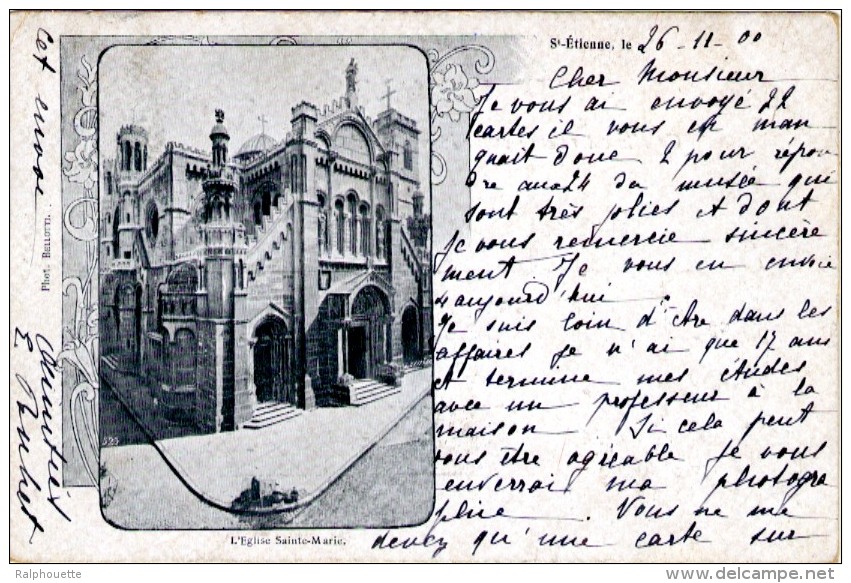 St-Étienne, le 26-11-00
Cher Monsieur
Je vous ai envoyé 22
cartes il vous en man
quait donc 2 pour répon
dre aux 24 du musée qui
sont très jolies et dont
je vous remercie sincère
ment. Je vous en envoie
4 aujourd'hui
Je suis loin d'être dans les
affaires je n'ai que 17 ans
et termine mes études
avec un professeur à la
maison Si cela peut
vous être agréable je vous
enverrai ma photogra
phie. Vous ne me
devez qu'une carte sur
cet envoi
Amitiés
Phot. BELLOTTI.
525
L'Eglise Sainte-Marie.
Ralphouette
http://www.delcampe.net